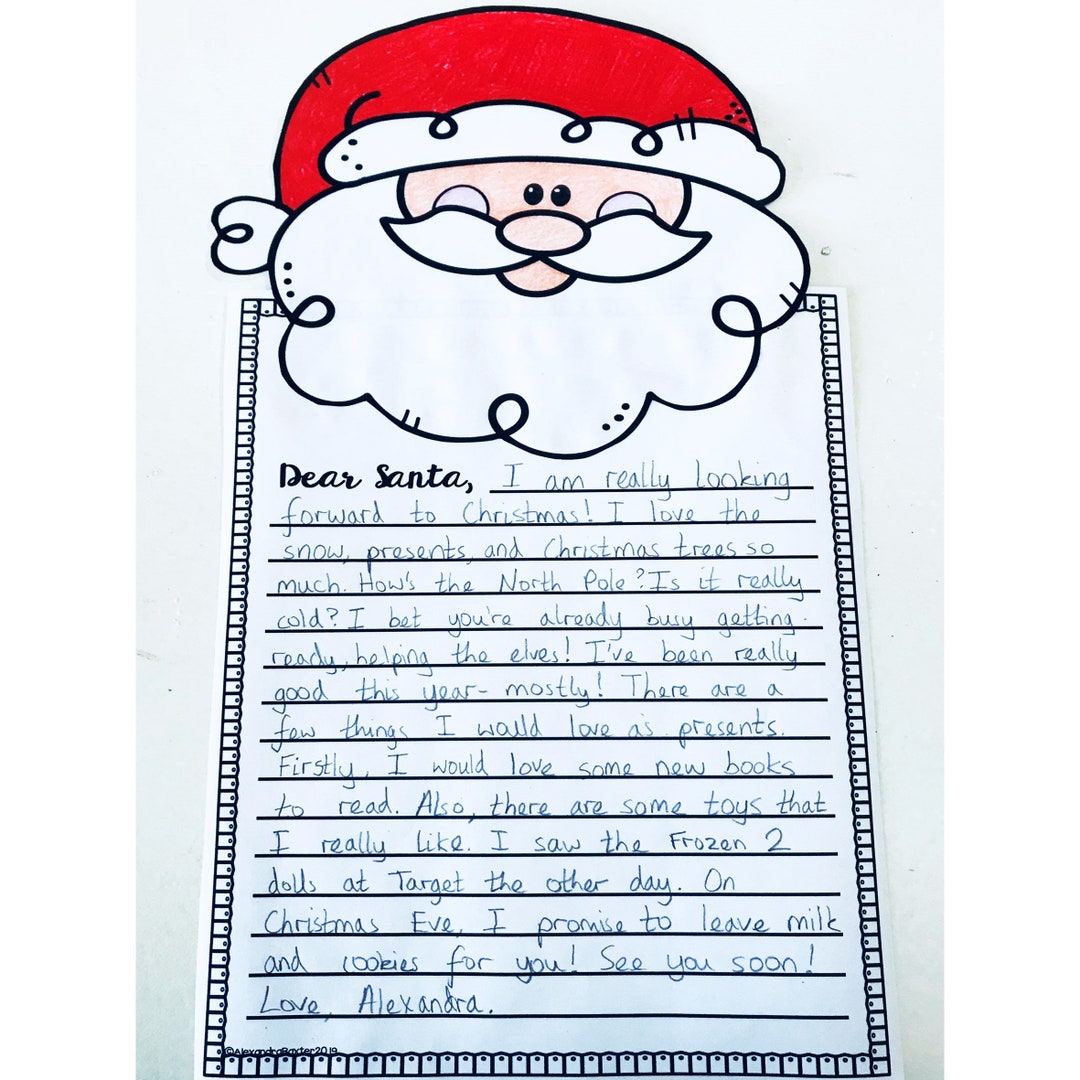 Dear Santa, I am really looking
forward to Christmas! I love the
snow, presents, and Christmas trees so
much. How's the North Pole? Is it really
cold? I bet you're already busy getting
ready, helping the elves! I've been really
good this year- mostly! There are a
few things I would love as presents.
Firstly, I would love some new books
to read. Also, there are some toys that
I really like. I saw the Frozen 2
dolls at Target the other day. On
Christmas Eve, I promise to leave milk
and cookies for you! See you soon!
Love, Alexandra.
©AlexandraBaxter2019